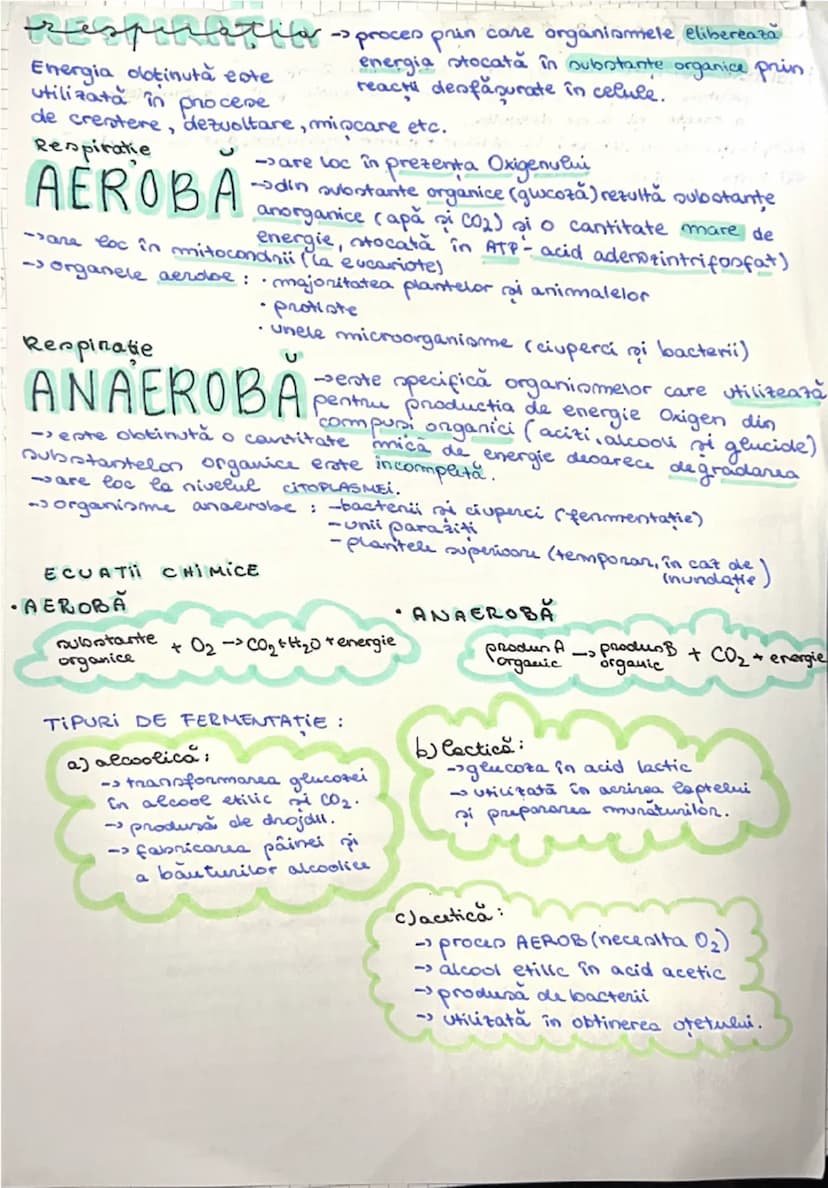 respirația → proces prin care organismele eliberează
energia stocată în substanțe organice prin
reacții desfășurate în celule.
Energia obținută este
utilizată în procese
de creștere, dezvoltare, mișcare etc.
Respirație
AEROBĂ
→ are loc în prezența Oxigenului
→ din substanțe organice (glucoză) rezultă substanțe
anorganice (apă și CO2) și o cantitate mare de
energie, stocată în ATP - acid adenozintrifosfat)
→ are loc în mitocondrii (la eucariote)
→ organele aerobe : • majoritatea plantelor și animalelor
• protiste
• unele microorganisme (ciuperci și bacterii)
Respirație
ANAEROBĂ
→ este specifică organismelor care utilizează
pentru producția de energie Oxigen din
compuși organici (acizi, alcooli și glucide)
→ este obținută o cantitate mică de energie deoarece degradarea
substanțelor organice este incompletă.
→ are loc la nivelul CITOPLASMEI.
→ organisme anaerobe : - bacterii și ciuperci (fermentație)
- unii paraziți
- plantele superioare (temporar, în caz de
inundație)
ECUAȚII CHIMICE
• AEROBĂ
substanțe
organice + O2 → CO2 + H2O + energie
• ANAEROBĂ
produs A
organic → produs B
organic + CO2 + energie
TIPURI DE FERMENTAȚIE :
a) alcoolică :
→ transformarea glucozei
în alcool etilic și CO2.
→ produsă de drojdii.
→ fabricarea pâinei și
a băuturilor alcoolice
b) lactică :
→ glucoza în acid lactic
→ utilizată în acrirea laptelui
și prepararea murăturilor.
c) acetică :
→ proces AEROB (necesita O2)
→ alcool etilic în acid acetic
→ produsă de bacterii
→ utilizată în obtinerea oțetului.